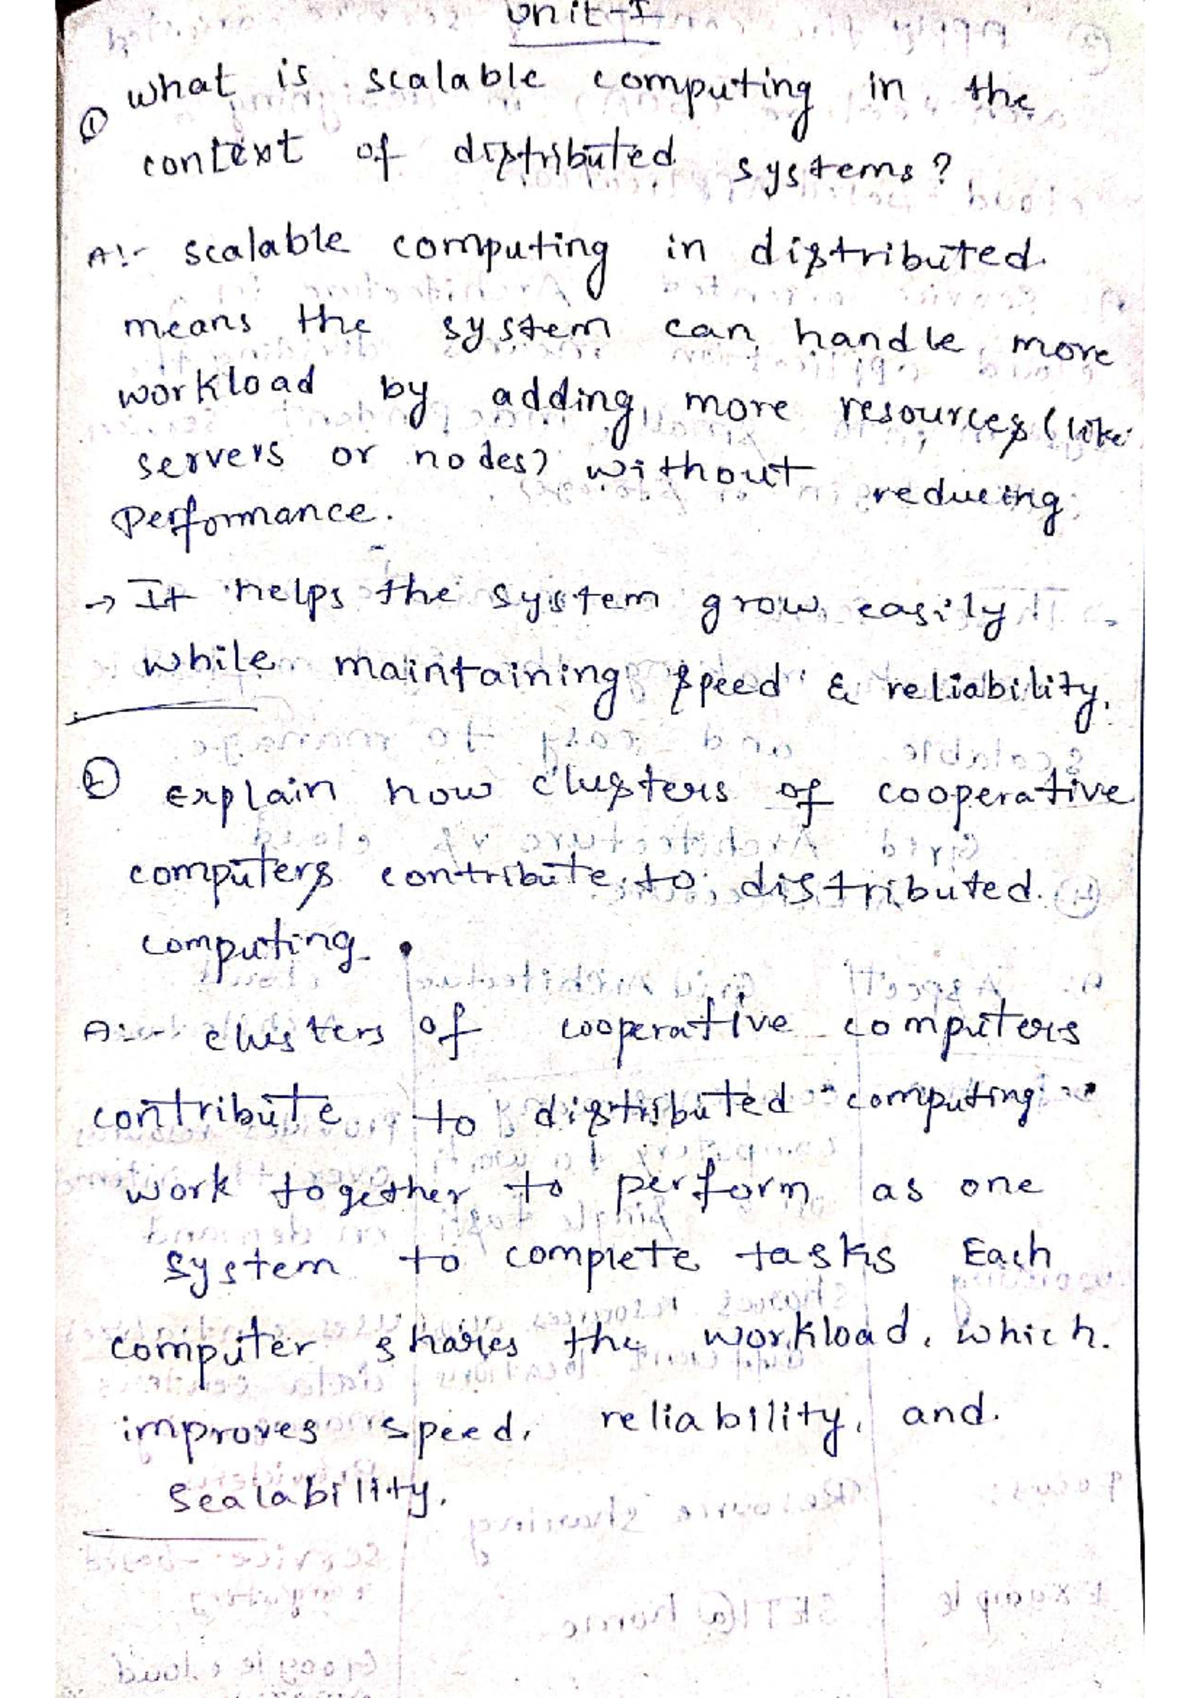 Unit-I
① What is scalable computing in the
context of distributed systems?
A:- scalable computing in distributed.
means the system can handle more
workload by adding more resources (like
servers or nodes) without reducing
performance.
→ It helps the system grow easily
while maintaining speed & reliability.
② explain how clusters of cooperative
computers contribute to distributed.
computing.
A:- clusters of cooperative computers
contribute to distributed computing
work together to perform as one
system to complete tasks Each
computer shares the workload, which.
improves speed, reliability, and.
scalability.